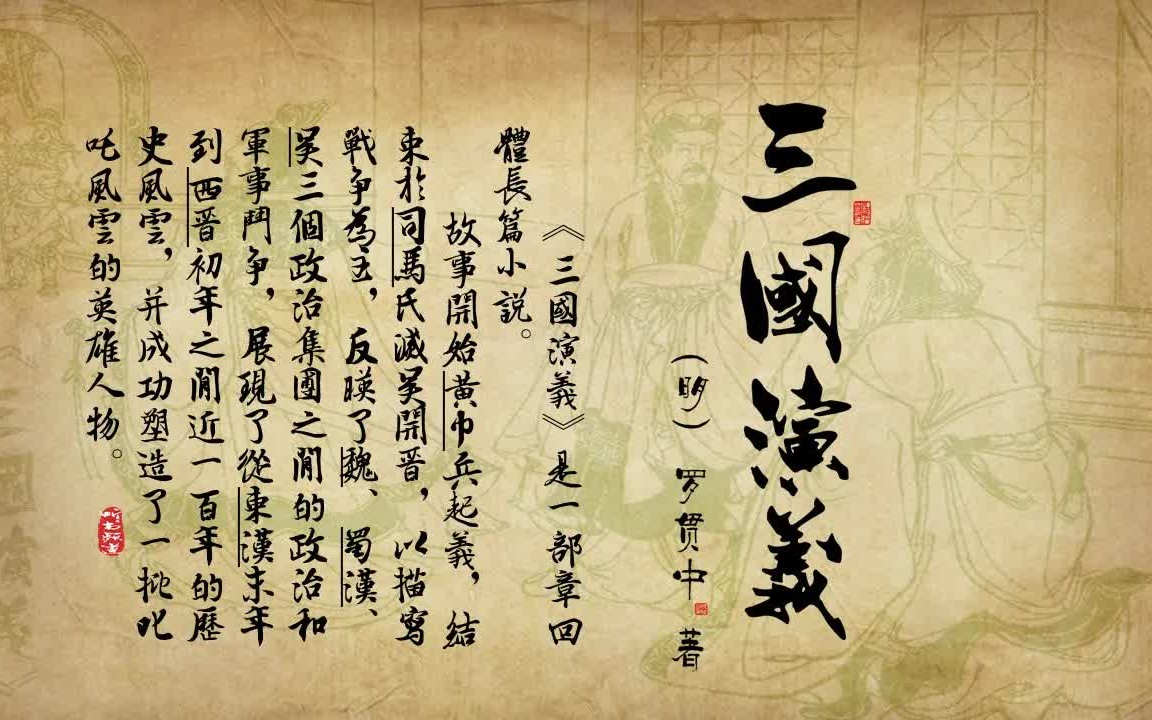 三國演義
（明）罗贯中著
《三國演義》是一部章回
體長篇小説。
故事開始黄巾兵起義，結
束於司馬氏滅吴開晉，以描寫
戰争為主，反映了魏、蜀漢、
吴三個政治集團之間的政治和
軍事鬥争，展現了從東漢末年
到西晉初年之間近一百年的歷
史風雲，并成功塑造了一批叱
吒風雲的英雄人物。